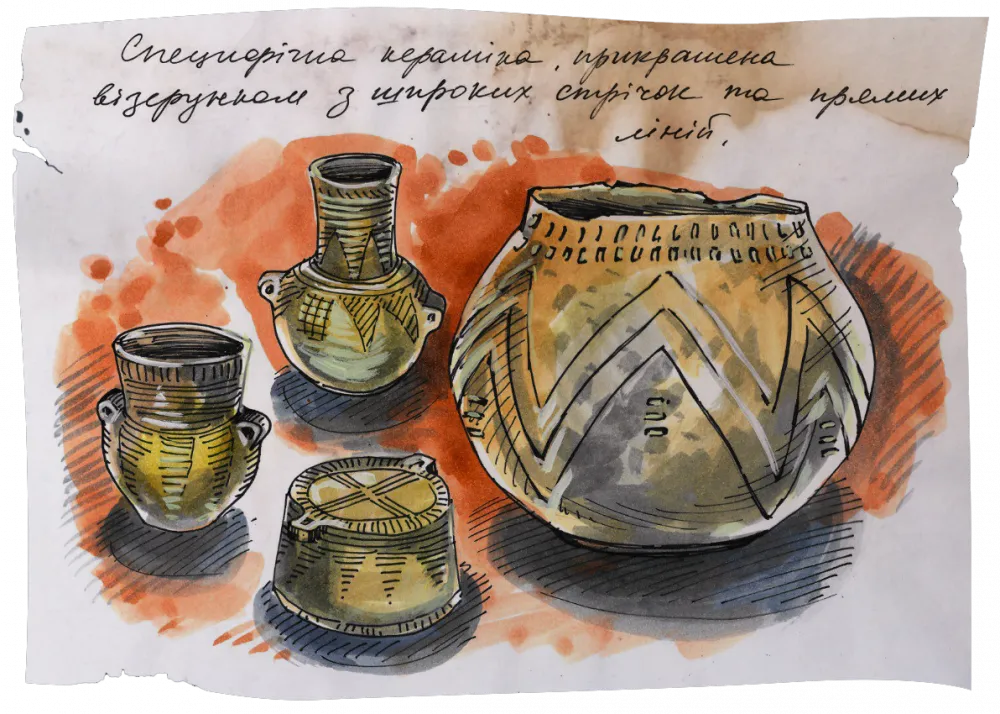 Специфічна кераміка, прикрашена
візерунком з широких стрічок та прямих
ліній.